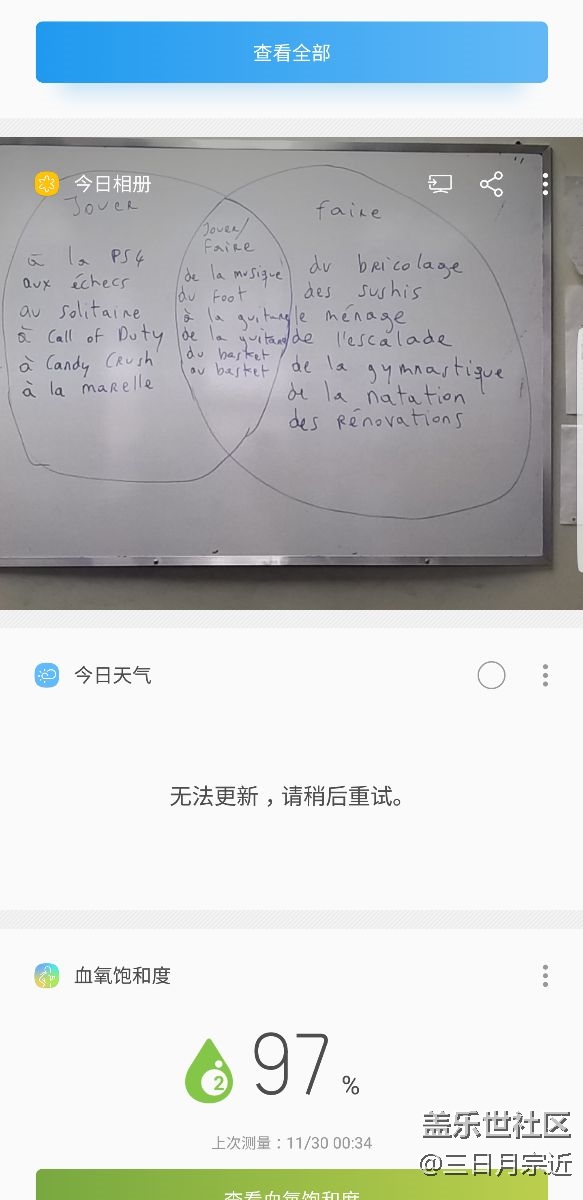 查看全部
今日相册
Jouer
Jouer/
Faire
faire
à la PS4
aux échecs
au solitaire
à Call of Duty
à Candy Crush
à la marelle
de la musique
du foot
à la guitare
de la guitare
du basket
au basket
du bricolage
des sushis
le ménage
de l'escalade
de la gymnastique
de la natation
des rénovations
今日天气
无法更新，请稍后重试。
血氧饱和度
2
97 %
上次测量：11/30 00:34
盖乐世社区
@三日月宗近
查看血氧饱和度